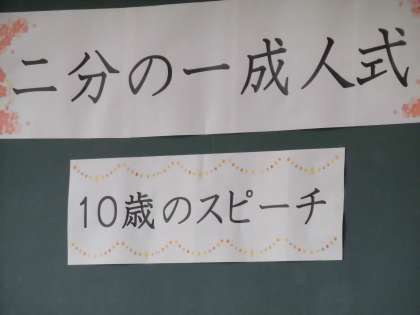 二分の一成人式
10歳のスピーチ